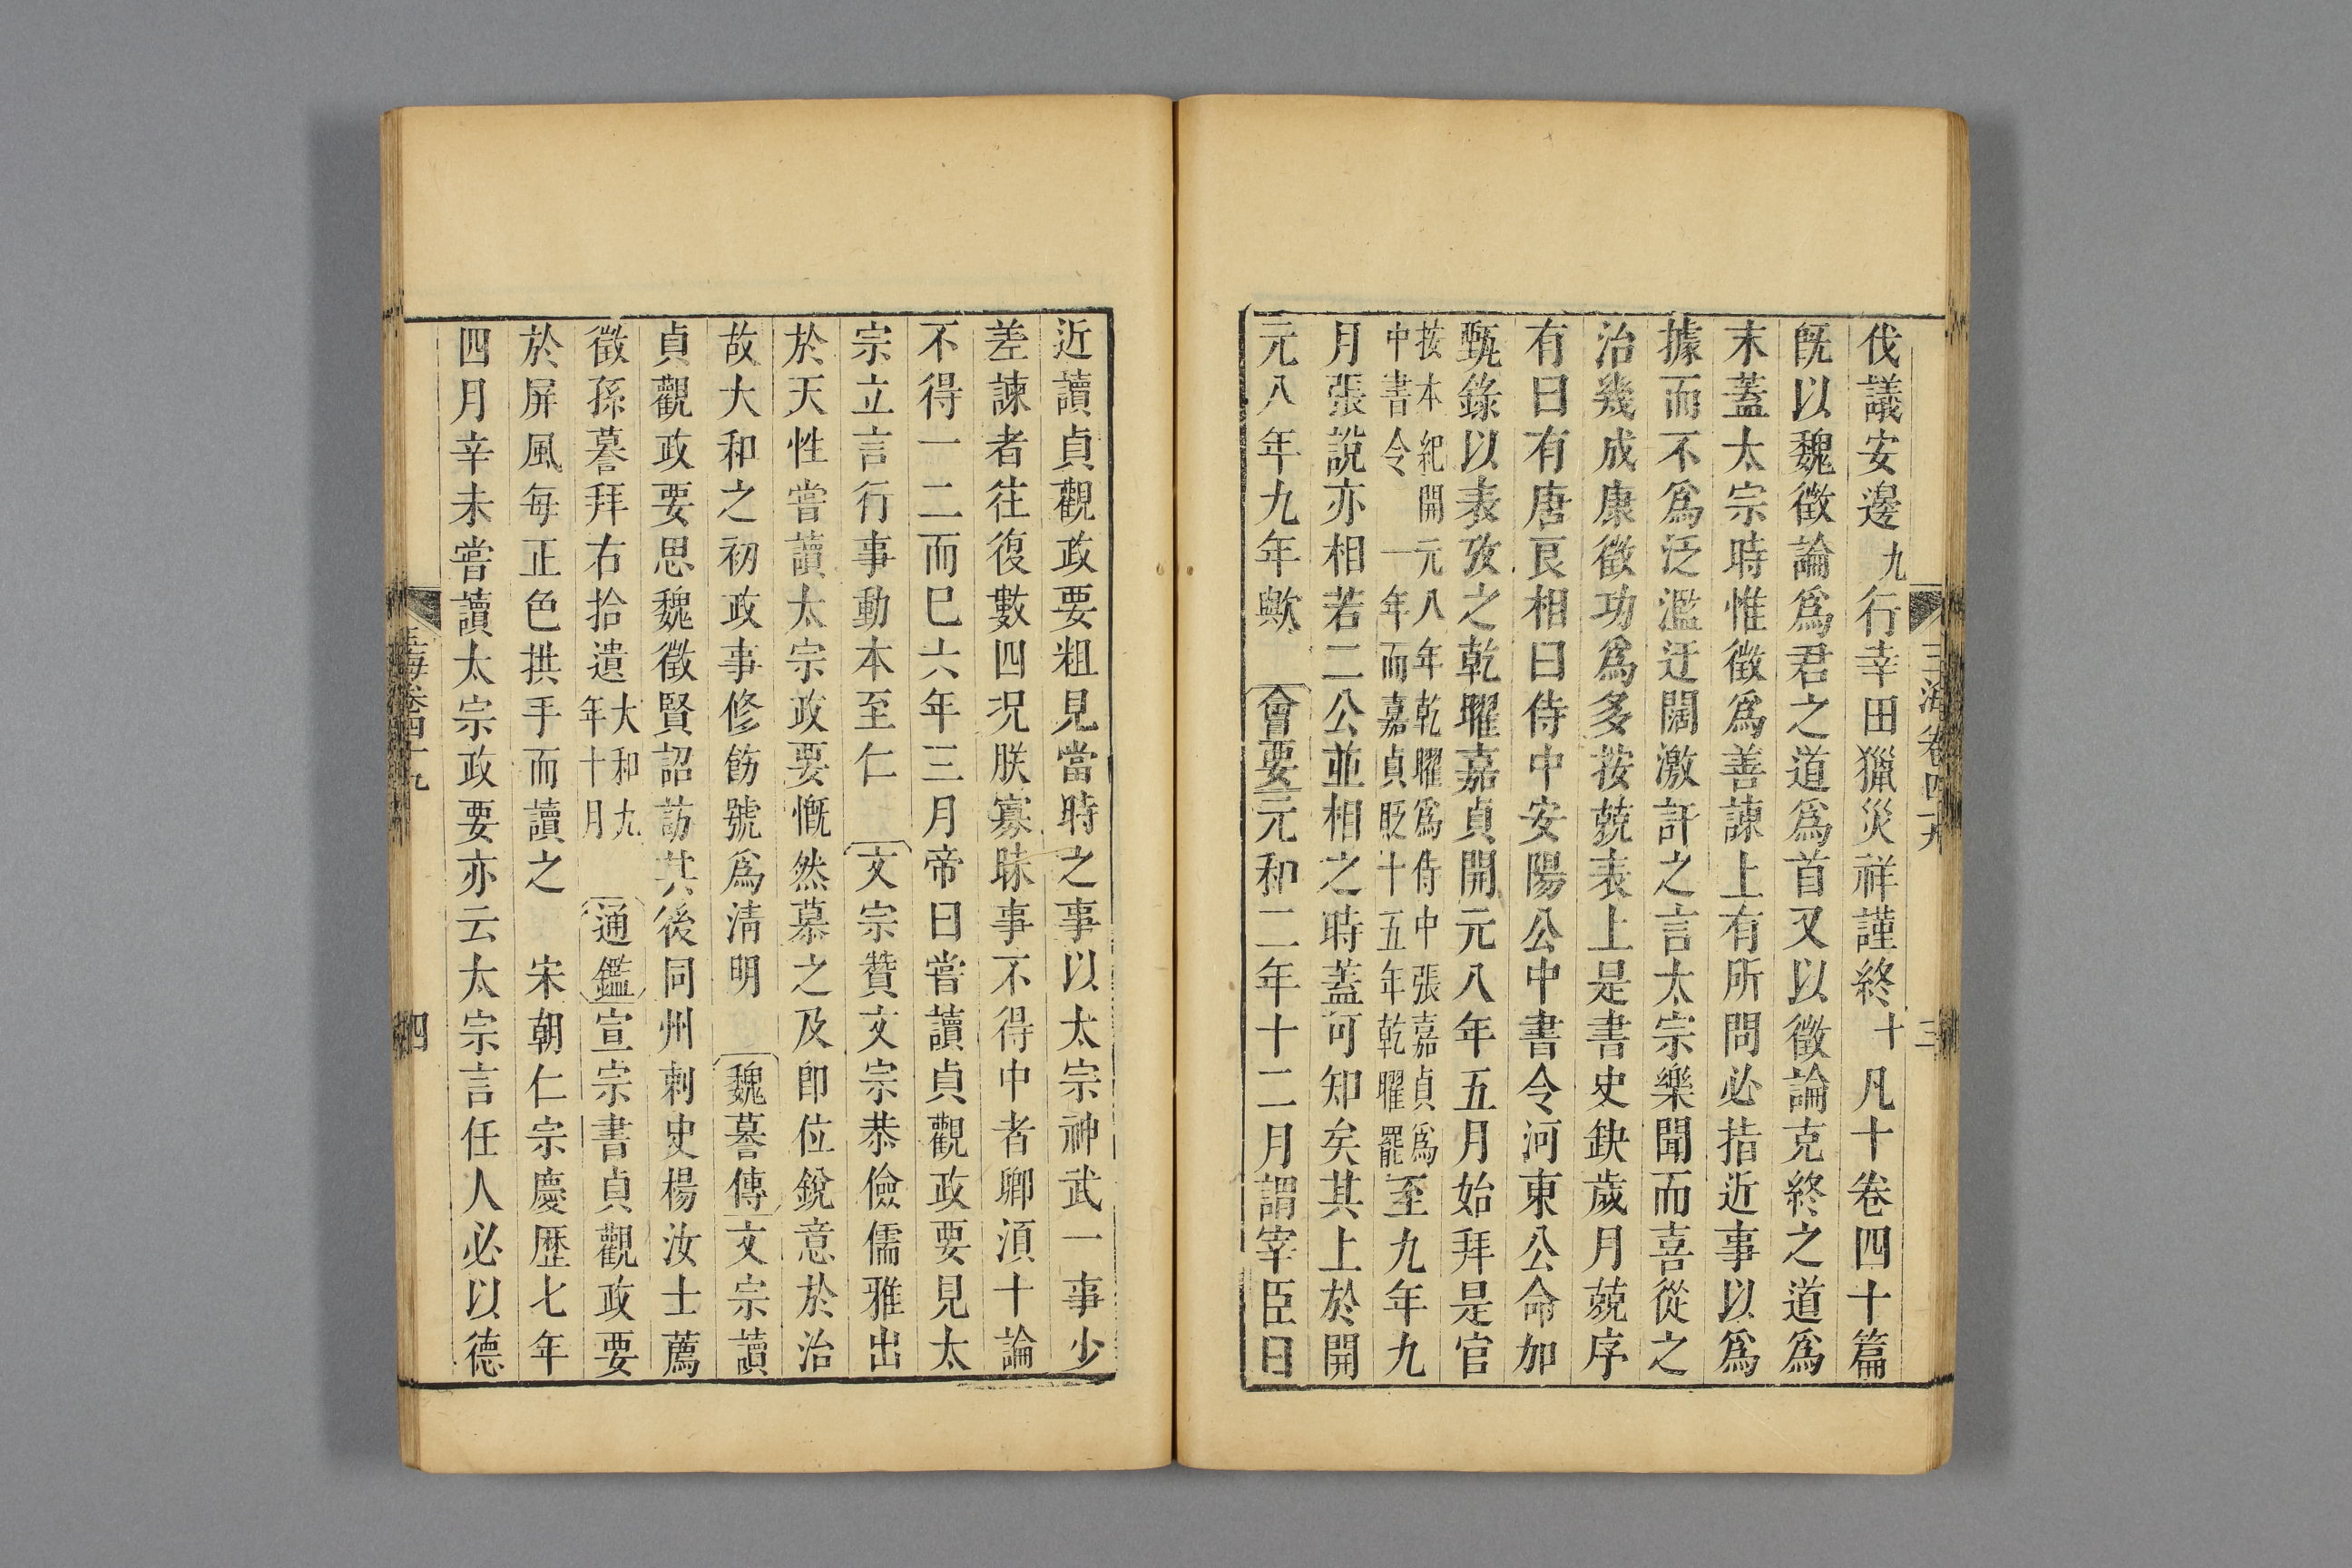 玉海卷四十九 三
伐議安邊九行幸田獵災祥謹終十凡十卷四十篇
旣以魏徵論爲君之道爲首又以徵論克終之道爲
末蓋太宗時惟徵爲善諫上有所問必指近事以爲
據而不爲泛濫迂闊激訐之言太宗樂聞而喜從之
治幾成康徵功爲多按兢表上是書史缺歲月兢序
有曰有唐良相曰侍中安陽公中書令河東公命加
甄錄以表攷之乾曜嘉貞開元八年五月始拜是官
按本紀開元八年乾曜爲侍中張嘉貞爲
中書令 一年而嘉貞貶十五年乾曜罷至九年九
月張說亦相若二公並相之時蓋可知矣其上於開
元八年九年歟 會要元和二年十二月謂宰臣曰
近讀貞觀政要粗見當時之事以太宗神武一事少
差諫者往復數四況朕寡昧事不得中者卿須十論
不得一二而已六年三月帝曰嘗讀貞觀政要見太
宗立言行事動本至仁 文宗贊文宗恭儉儒雅出
於天性嘗讀太宗政要慨然慕之及卽位銳意於治
故大和之初政事修飭號爲淸明 魏謩傳文宗讀
貞觀政要思魏徵賢詔訪其後同州刺史楊汝士薦
徵孫謩拜右拾遺大和九年十月 通鑑宣宗書貞觀政要
於屏風每正色拱手而讀之 宋朝仁宗慶歷七年
四月辛未嘗讀太宗政要亦云太宗言任人必以德
玉海卷四十九 四